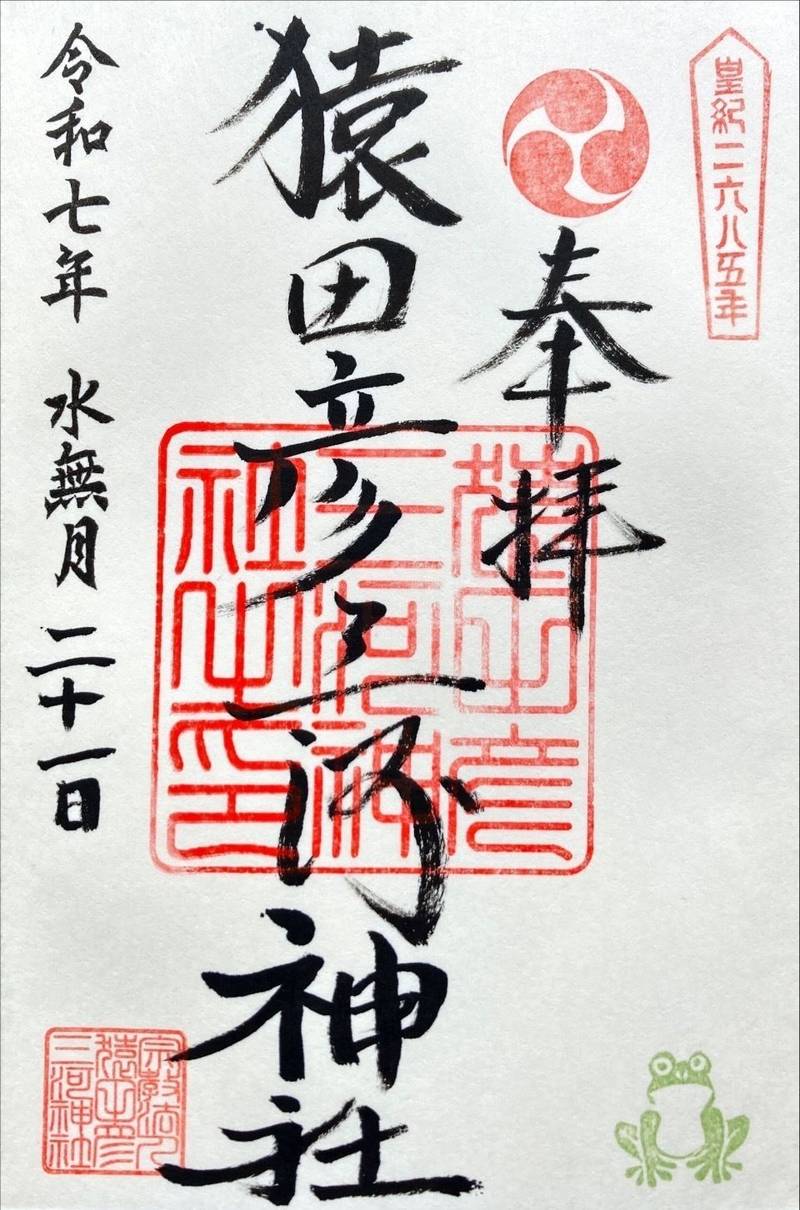 皇紀二六八五年
奉拝
猿田彦三河神社
猿田彦
三河神
社之印
令和七年 水無月 二十一日
宗教法人
猿田彦
三河神社